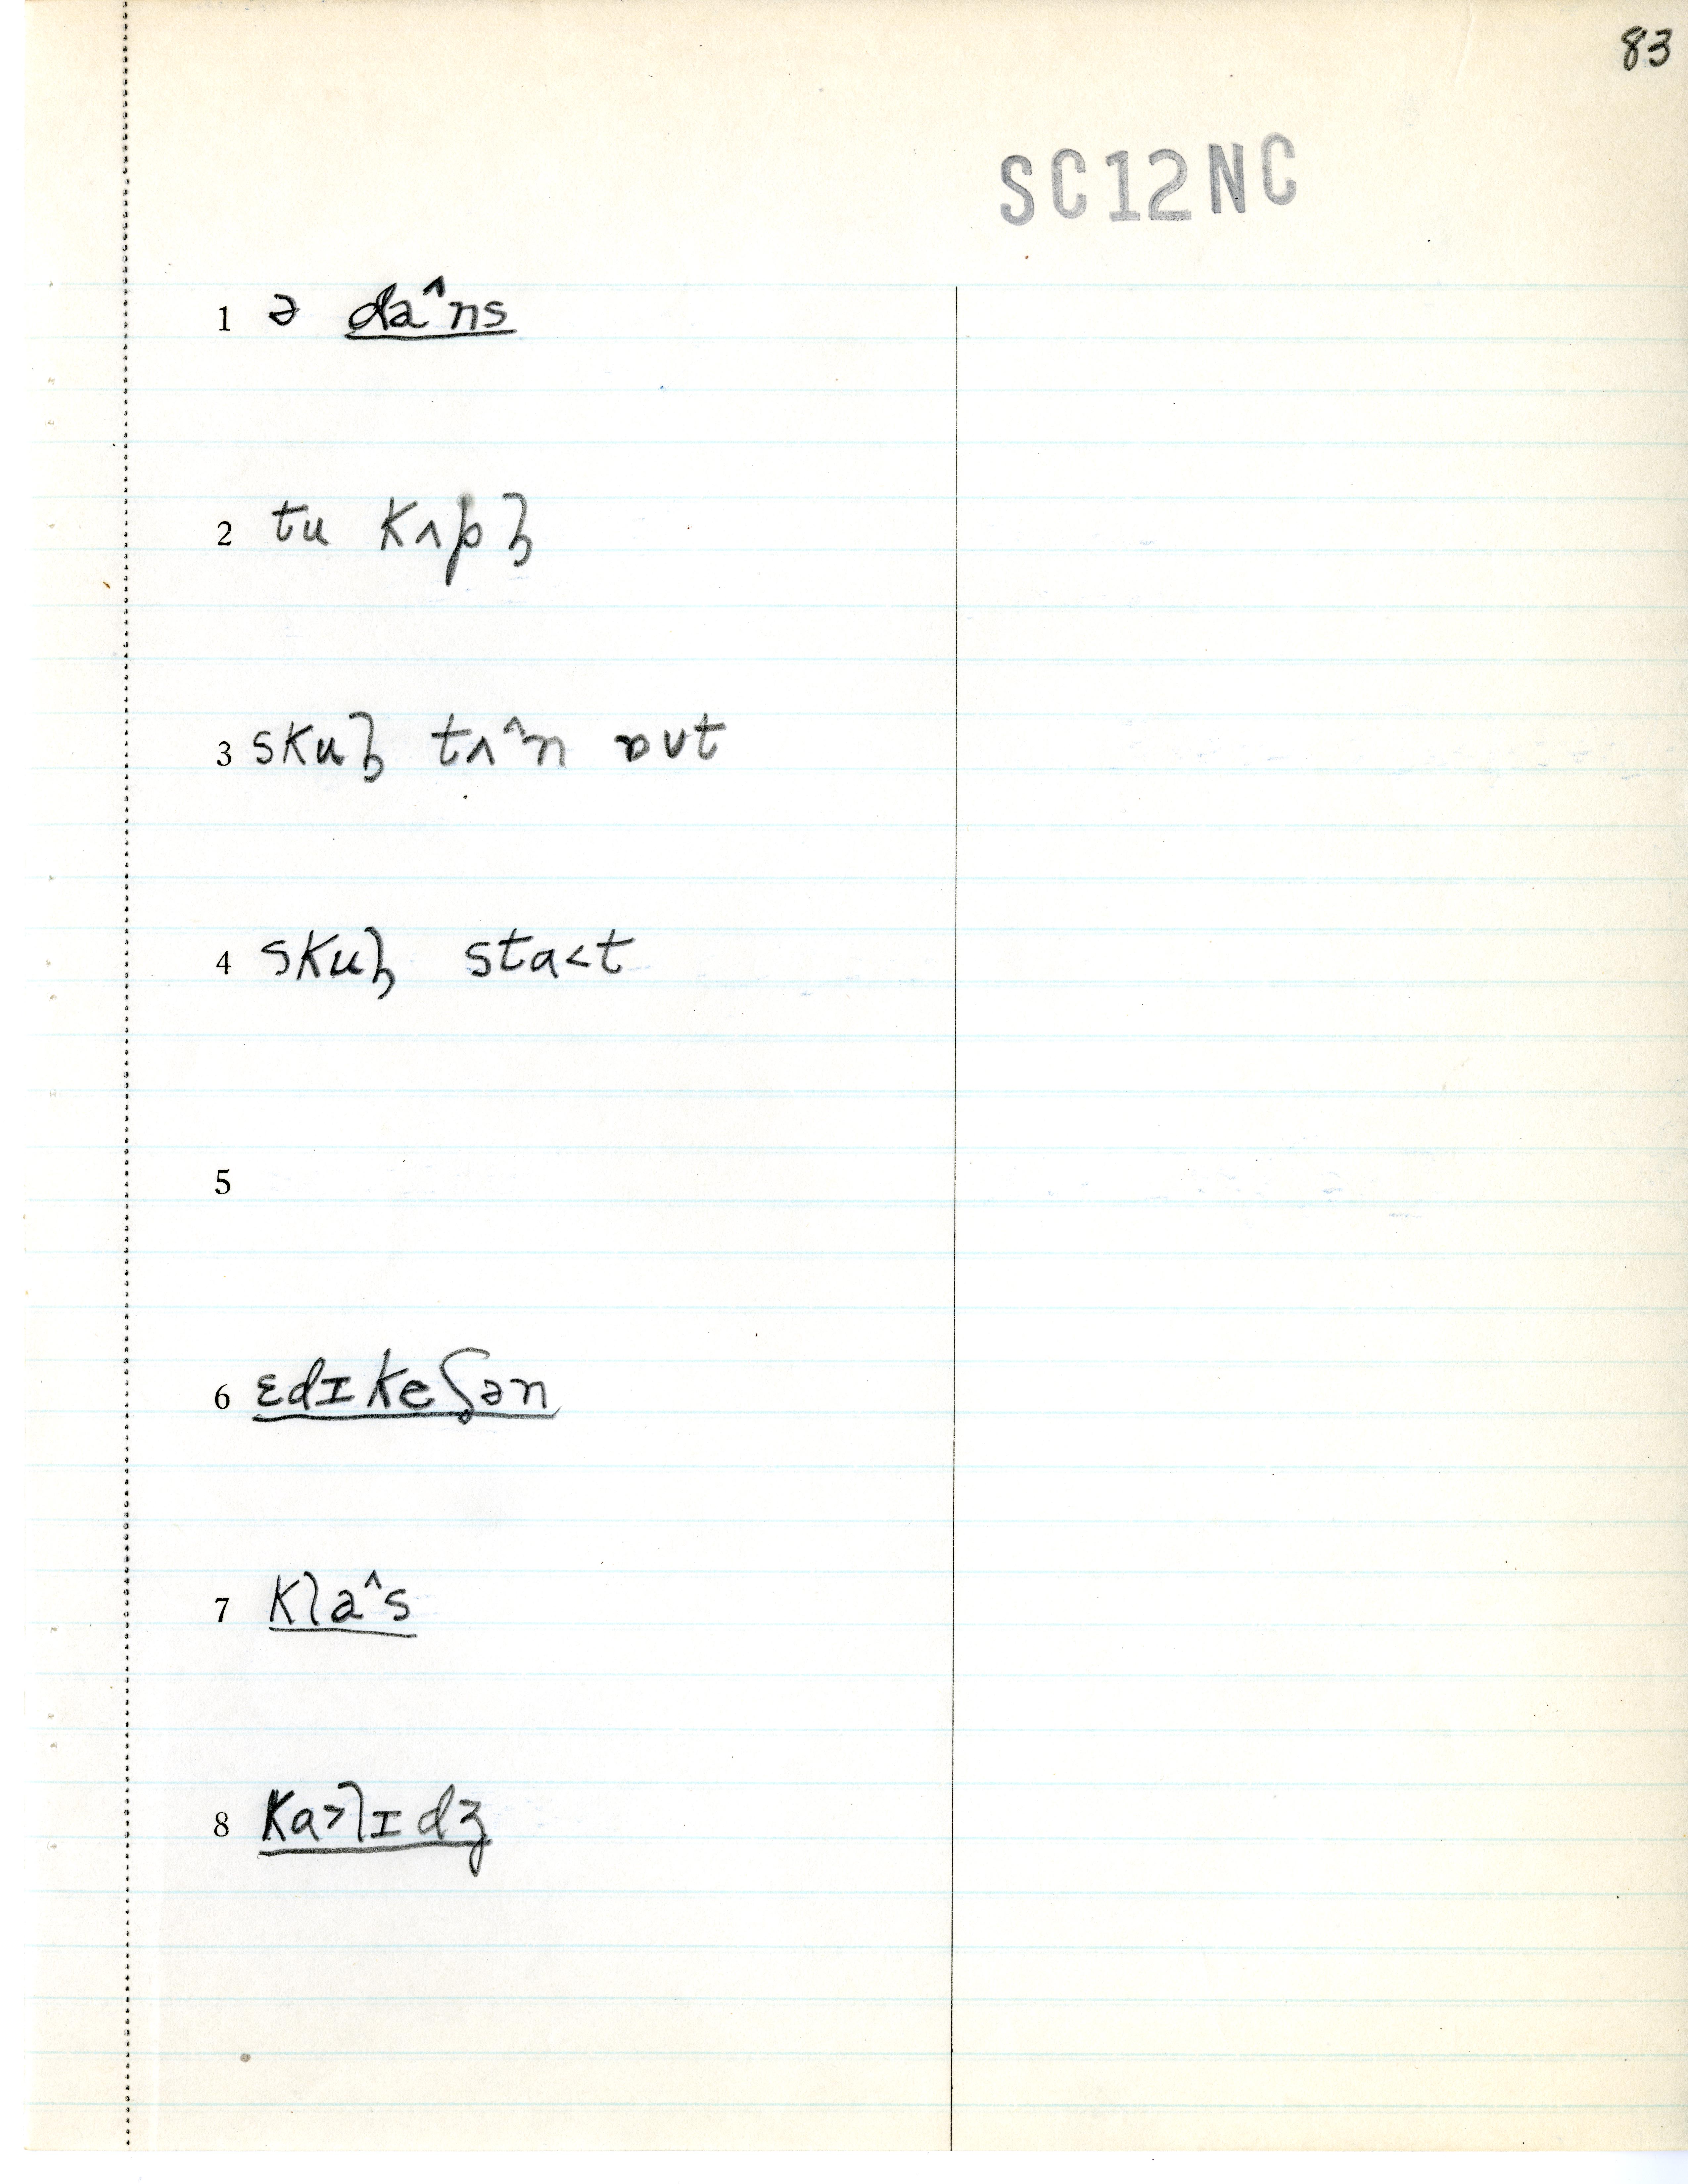 83
SC12NC
1 ə da^ns
2 tu kʌpɫ
3 skuɫ tʌ^n ɒʊt
4 skuɫ sta<t
5
6 ɛdɪkeʃən
7 kla^s
8 ka>lɪdʒ